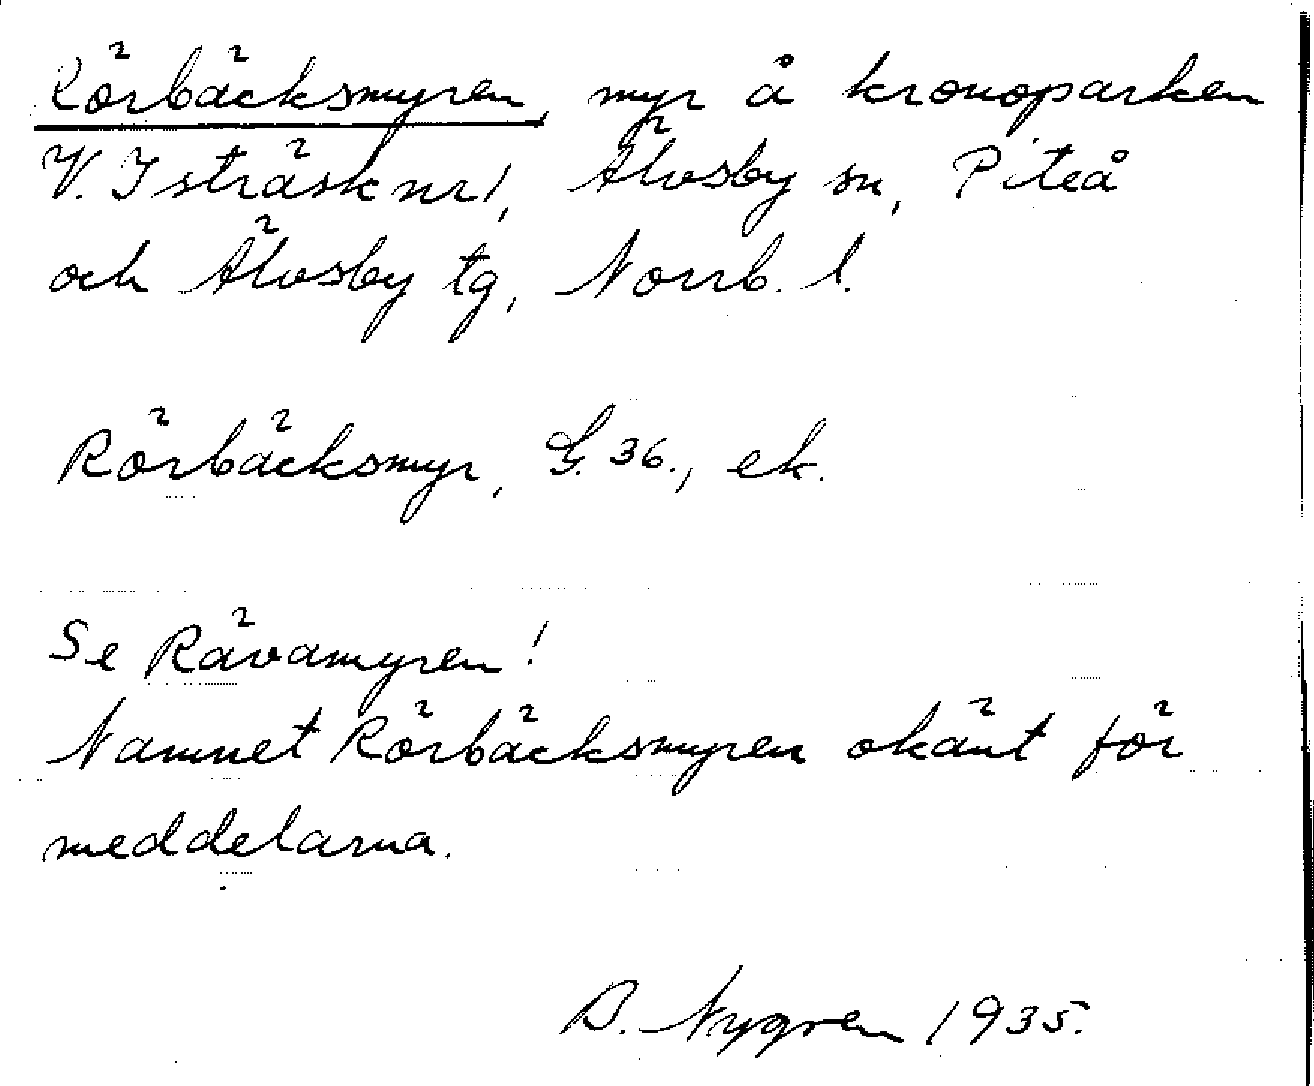 Rörbäcksmyren, myr å kronoparken
V. Isträsk nr 1, Älvsby sn, Piteå
och Älvsby tg, Norrb. l.
Rörbäcksmyr, G. 36., ek.
Se Rävamyren!
Namnet Rörbäcksmyren okänt för
meddelarna.
B. Nygren 1935.